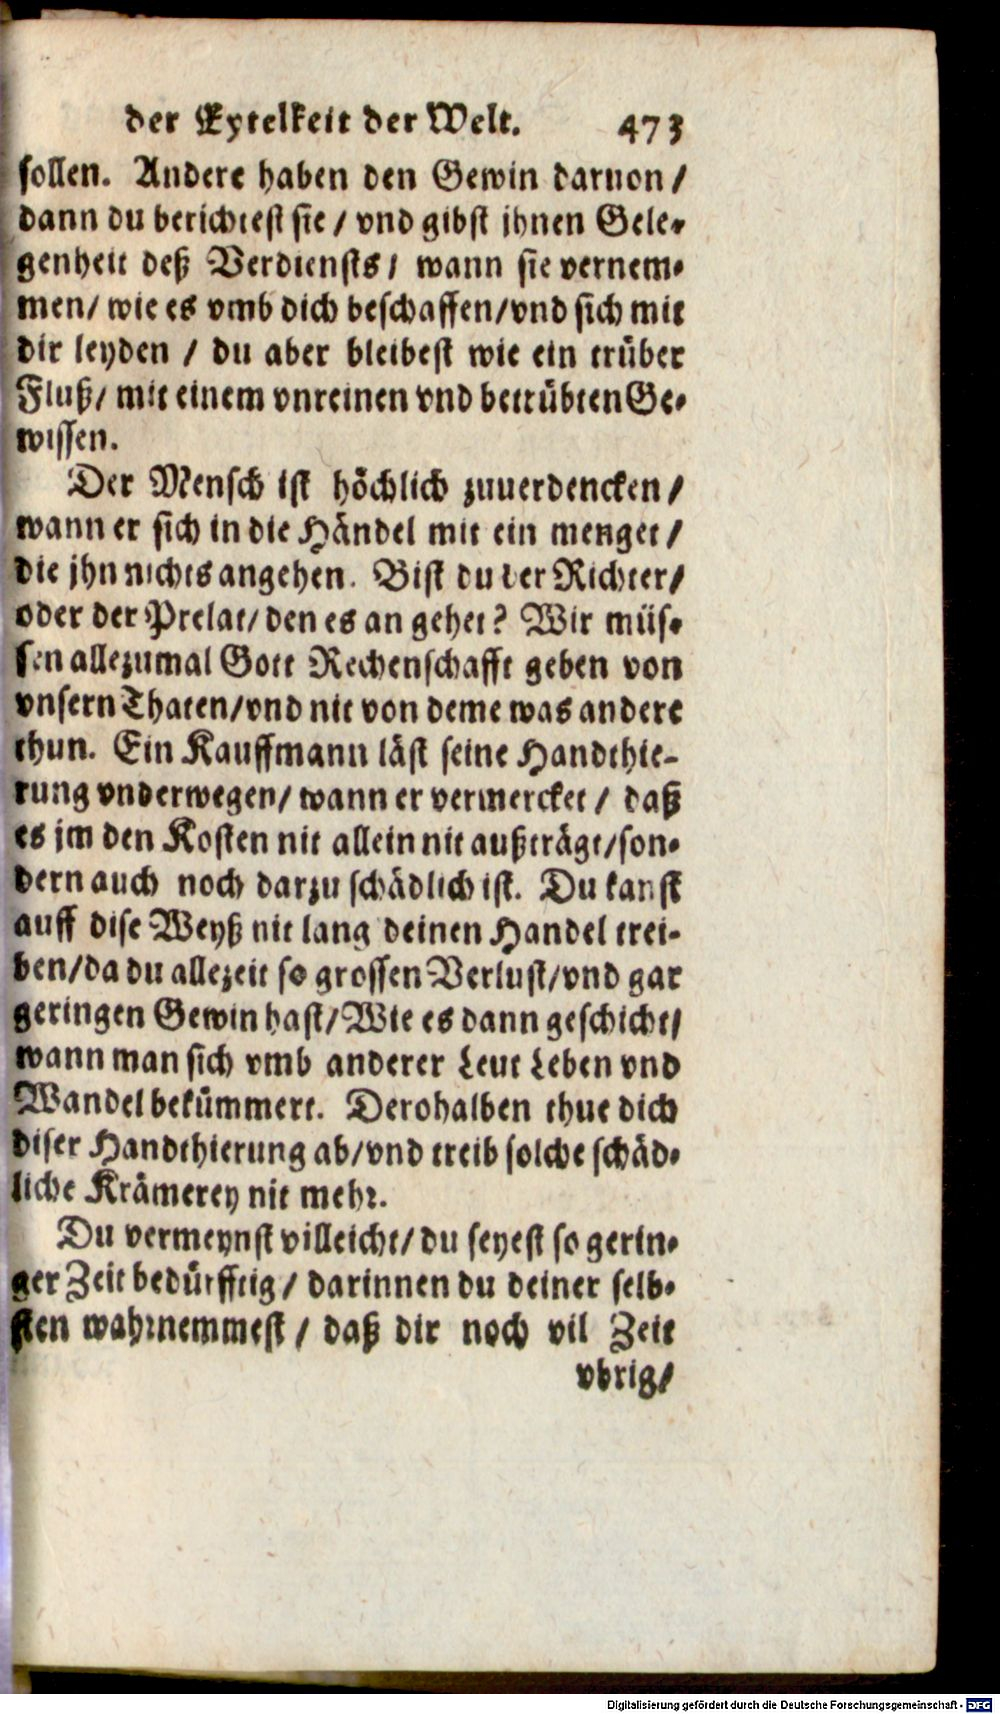 der Eytelkeit der Welt. 473
sollen. Andere haben den Gewin daruon/
dann du berichtest sie / vnd gibst jhnen Gele-
genheit deß Verdiensts / wann sie vernem-
men/ wie es vmb dich beschaffen/vnd sich mit
dir leyden / du aber bleibest wie ein trüber
Fluß/ mit einem vnreinen vnd betrübten Ge-
wissen.
Der Mensch ist höchlich zuuerdencken/
wann er sich in die Händel mit ein menget/
die jhn nichts angehen. Bist du der Richter/
oder der Prelat/ den es an gehet? Wir müs-
sen allezumal Gott Rechenschafft geben von
vnsern Thaten/vnd nit von deme was andere
thun. Ein Kauffmann läst seine Handthie-
rung vnderwegen/ wann er vermercket / daß
es jm den Kosten nit allein nit außträgt/son-
dern auch noch darzu schädlich ist. Du kanst
auff dise Weyß nit lang deinen Handel trei-
ben/da du allezeit so grossen Verlust/vnd gar
geringen Gewin hast/Wie es dann geschicht/
wann man sich vmb anderer Leut Leben vnd
Wandel bekümmert. Derohalben thue dich
diser Handthierung ab/vnd treib solche schäd-
liche Krämerey nit mehr.
Du vermeynst villeicht/ du seyest so gerin-
ger Zeit bedürfftig / darinnen du deiner selb-
sten wahrnemmest / daß dir noch vil Zeit
vbrig/
Digitalisierung gefördert durch die Deutsche Forschungsgemeinschaft - DFG